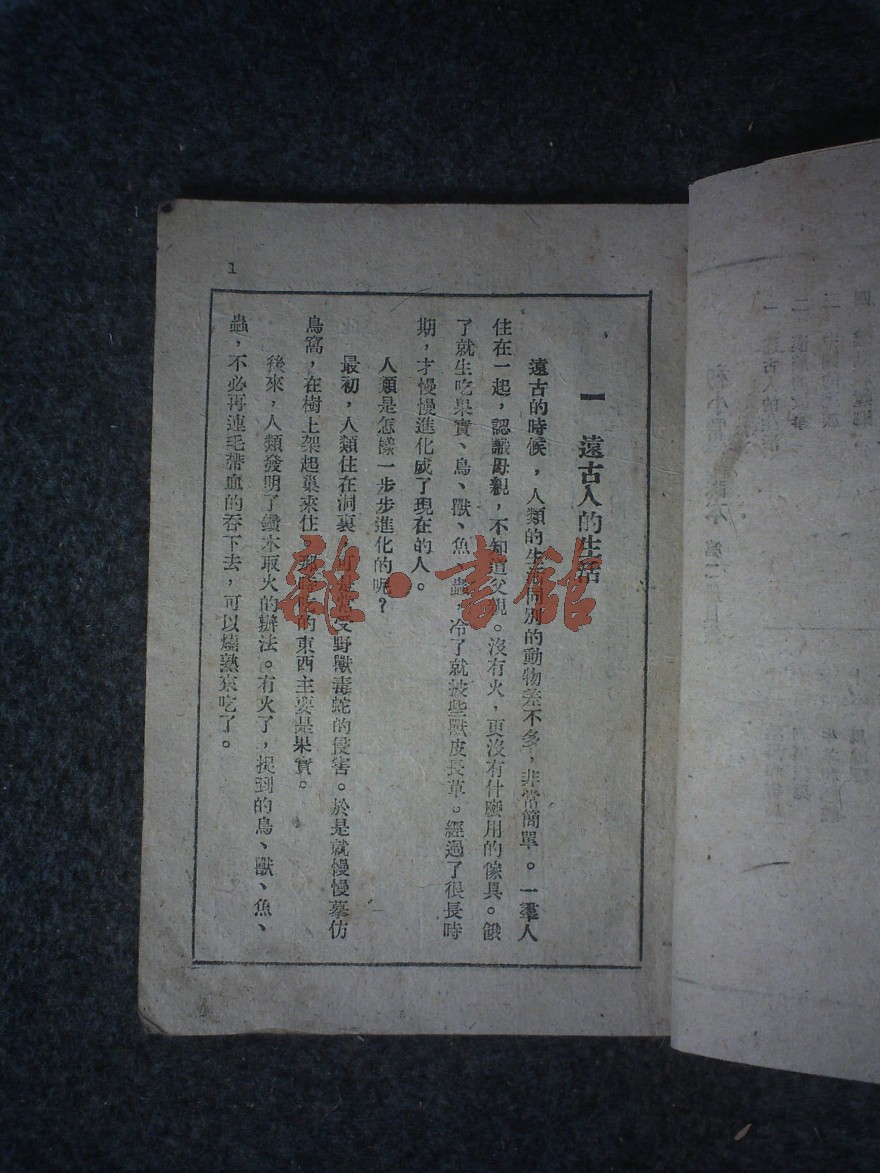 1
一 遠古人的生活
遠古的時候，人類的生活同別的動物差不多，非常簡單。一羣人
住在一起，認識母親，不知道父親。沒有火，更沒有什麼用的傢具。餓
了就生吃果實、鳥、獸、魚、蟲，冷了就披些獸皮長草。經過了很長時
期，才慢慢進化成了現在的人。
人類是怎樣一步步進化的呢？
最初，人類住在洞裏，可是常受野獸毒蛇的侵害。於是就慢慢摹仿
鳥窩，在樹上架起巢來住。那時吃的東西主要是果實。
後來，人類發明了鑽木取火的辦法。有火了，捉到的鳥、獸、魚、
蟲，不必再連毛帶血的吞下去，可以燒熟來吃了。
雜·書館